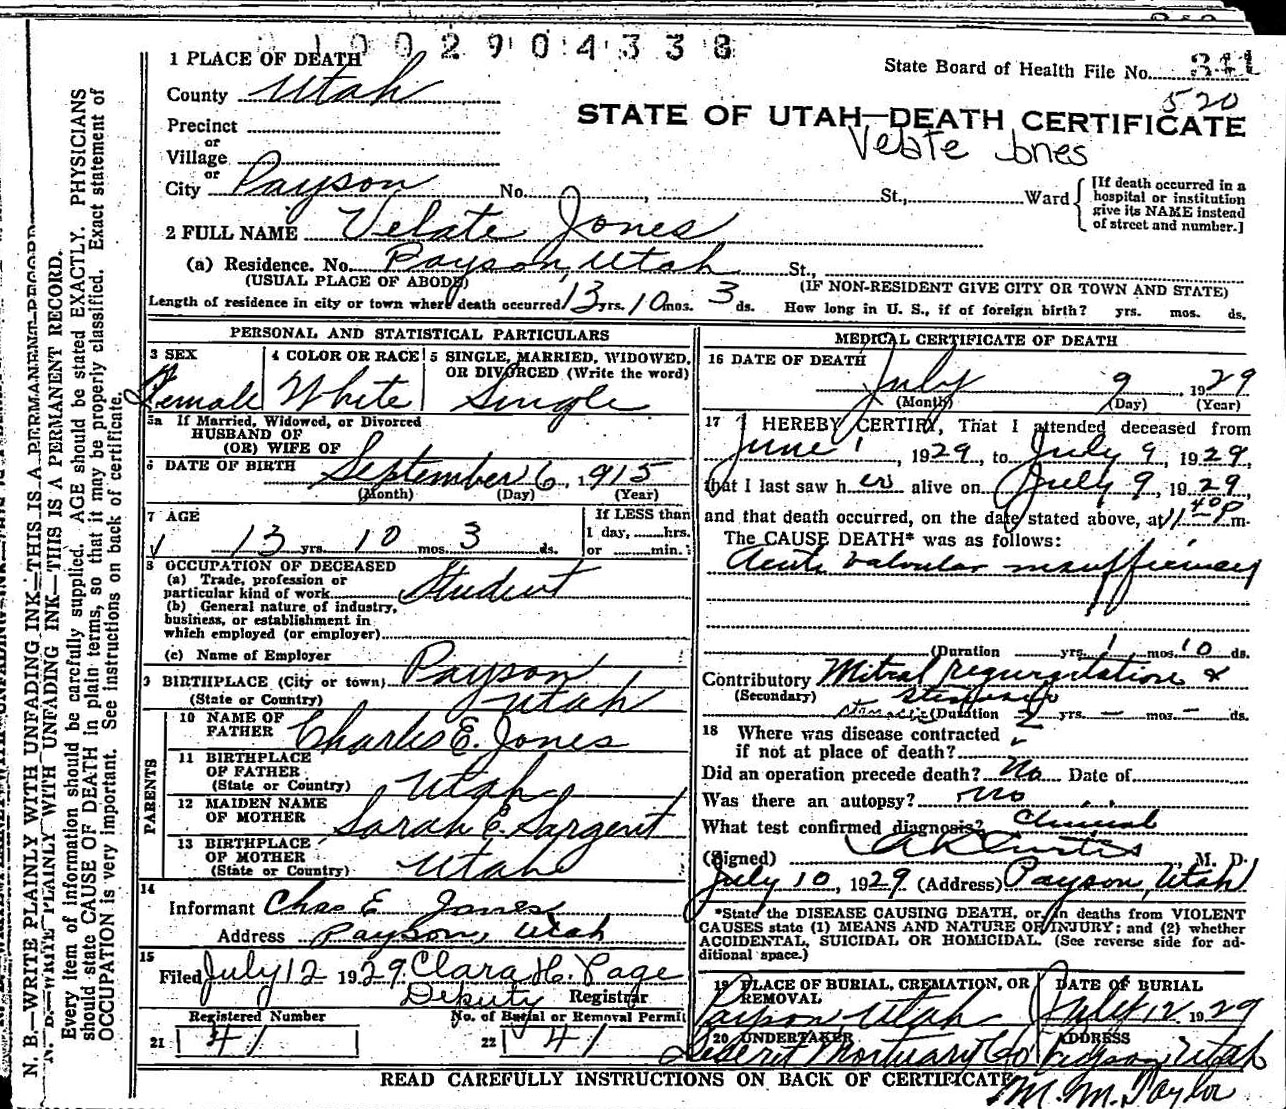 1002904338
1 PLACE OF DEATH
State Board of Health File No. 341
County Utah
520
STATE OF UTAH—DEATH CERTIFICATE
Precinct
Velate Jones
or
Village
or
City Payson No. , St., Ward
[If death occurred in a hospital or institution give its NAME instead of street and number.]
2 FULL NAME Velate Jones
(a) Residence. No. Payson, Utah St.,
(USUAL PLACE OF ABODE) (IF NON-RESIDENT GIVE CITY OR TOWN AND STATE)
Length of residence in city or town where death occurred 13 yrs. 10 mos. 3 ds. How long in U. S., if of foreign birth? yrs. mos. ds.
PERSONAL AND STATISTICAL PARTICULARS
3 SEX
Female
4 COLOR OR RACE
White
5 SINGLE, MARRIED, WIDOWED, OR DIVORCED (Write the word)
Single
5a If Married, Widowed, or Divorced
HUSBAND OF
(OR) WIFE OF
6 DATE OF BIRTH September 6, 1915
(Month) (Day) (Year)
7 AGE
13 yrs. 10 mos. 3 ds.
If LESS than
1 day, hrs.
or min.
8 OCCUPATION OF DECEASED
(a) Trade, profession or
particular kind of work Student
(b) General nature of industry,
business, or establishment in
which employed (or employer)
(c) Name of Employer
9 BIRTHPLACE (City or town) Payson
(State or Country) Utah
PARENTS
10 NAME OF FATHER Charles E. Jones
11 BIRTHPLACE OF FATHER (State or Country) Utah
12 MAIDEN NAME OF MOTHER Sarah E. Sargent
13 BIRTHPLACE OF MOTHER (State or Country) Utah
14
Informant Chas E. Jones
Address Payson, Utah
15
Filed July 12 1929 Clara H. Page
Deputy Registrar
Registered Number
21 41
No. of Burial or Removal Permit
22 41
MEDICAL CERTIFICATE OF DEATH
16 DATE OF DEATH
July 9 1929
(Month) (Day) (Year)
17 I HEREBY CERTIFY, That I attended deceased from
June 1, 1929, to July 9, 1929,
that I last saw her alive on July 9, 1929,
and that death occurred, on the date stated above, at 11 40 P m.
The CAUSE DEATH* was as follows:
Acute valvular insufficiency
(Duration yrs. 1 mos. 10 ds.
Contributory Mitral regurgitation &
(Secondary)
(Duration 2 yrs. — mos. — ds.
18 Where was disease contracted
if not at place of death?
Did an operation precede death? No Date of
Was there an autopsy? No
What test confirmed diagnosis? Clinical
(Signed) A L Curtis, M. D.
July 10, 1929 (Address) Payson, Utah
*State the DISEASE CAUSING DEATH, or, in deaths from VIOLENT
CAUSES state (1) MEANS AND NATURE OF INJURY; and (2) whether
ACCIDENTAL, SUICIDAL OR HOMICIDAL. (See reverse side for ad-
ditional space.)
19 PLACE OF BURIAL, CREMATION, OR REMOVAL
Payson Utah
DATE OF BURIAL
July 12 1929
20 UNDERTAKER
Deseret Mortuary Co
ADDRESS
Payson, Utah
READ CAREFULLY INSTRUCTIONS ON BACK OF CERTIFICATE
M. M. Taylor
N. B.—WRITE PLAINLY WITH UNFADING INK—THIS IS A PERMANENT RECORD.
Every item of information should be carefully supplied. AGE should be stated EXACTLY. PHYSICIANS
should state CAUSE OF DEATH in plain terms, so that it may be properly classified. Exact statement of
OCCUPATION is very important. See instructions on back of certificate.